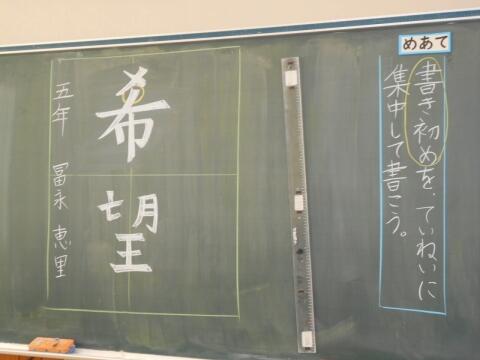 めあて
書き初めを、ていねいに
集中して書こう。
希望
五年 冨永 恵里